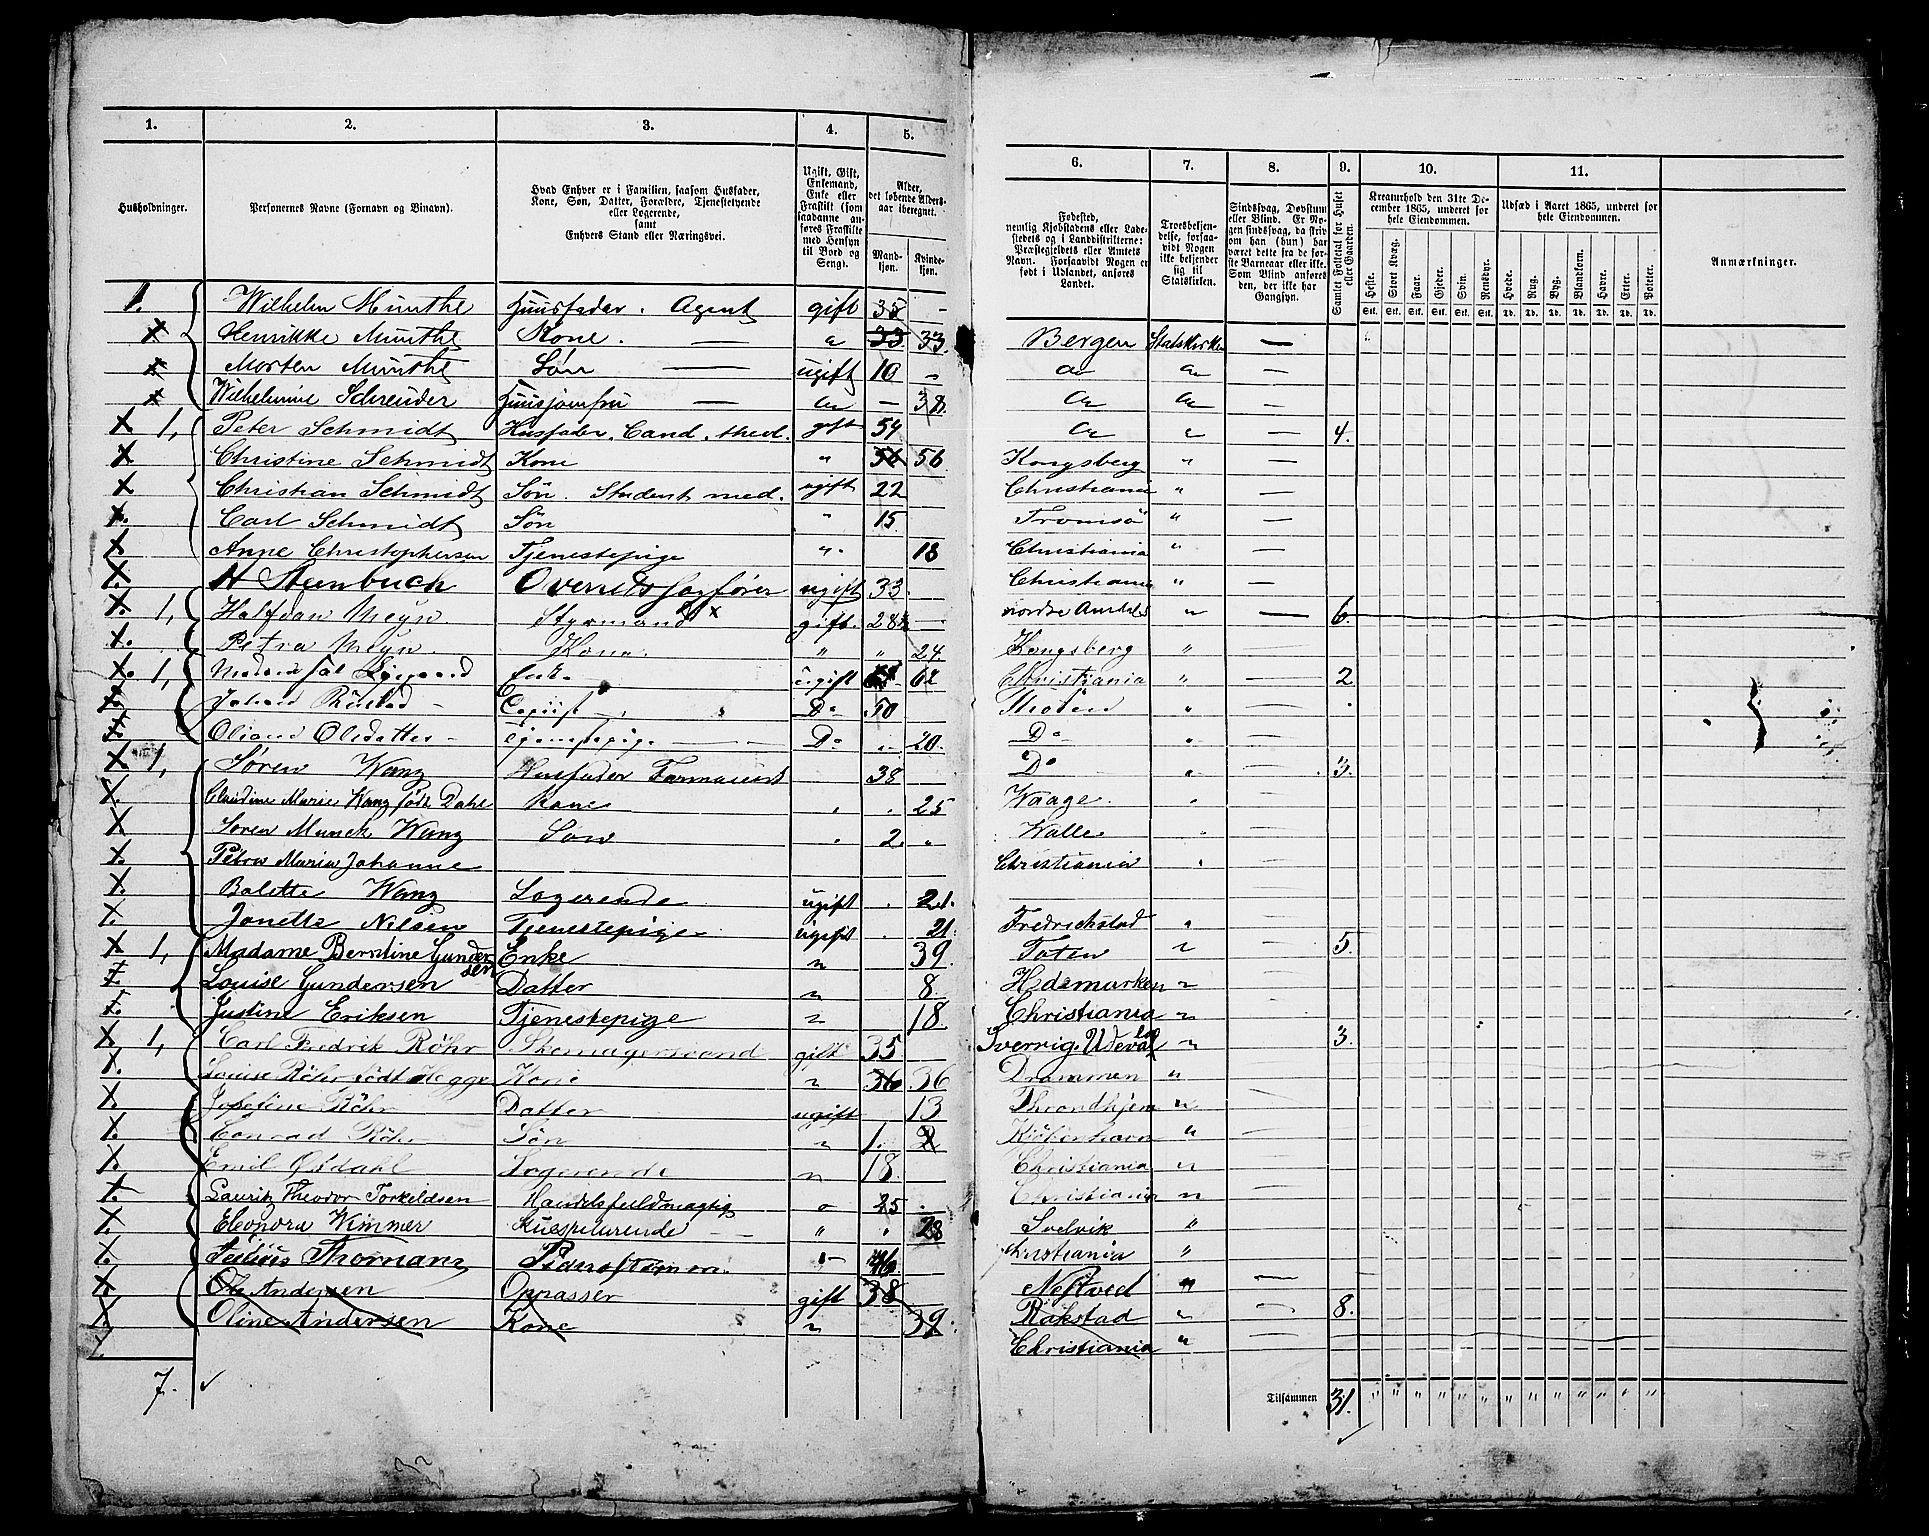 1. 2. 3. 4. 5.
Husholdninger. Personernes Navne (Fornavn og Binavn). Hvad Enhver er i Familien, saasom Husfader, Kone, Søn, Datter, Forældre, Tjenestetyende eller Logerende, samt Enhvers Stand eller Næringsvei. Ugift, Gift, Enkemand, Enke eller Fraskilt (som saadanne anføres Fraskilte med Hensyn til Bord og Seng). Alder, det løbende Aldersaar iberegnet. Mandkjøn. Kvindekjøn.
1. Wilhelm Munthe Huusfader. Agent gift 35 -
Henrikke Munthe Kone. — " 33 33.
Morten Munthe Søn — ugift 10 -
Wilhelmine Schreuder Huusjomfru — " - 38.
1, Peter Schmidt Husfader, Cand. theol. gift 54
Christine Schmidt Kone " 56 56
Christian Schmidt Søn. Student med. ugift 22
Carl Schmidt Søn " 15.
Anne Christophersen Tjenestepige " 18
H Steenbuch Overretssagfører ugift 33
1, Halfdan Meyn Styrmand x gift. 28
Petra Meyn. Kone. " " 24.
1, Enke ugift 62
Copiist Do 50
Oliane Olsdatter Tjenestepige Do 20.
1, Søren Wang Husfader Farmaceut 38
Claudine Marie Wang født Dahl Kone 25
Søren Munch Wang Søn 2.
Petra Maria Johanne
Bolette Wang Logerende ugift 21.
Janette Nilsen Tjenestepige ugift 21.
1, Madame Berntine Gundersen Enke " 39.
Louise Gundersen Datter " 8.
Justine Eriksen Tjenestepige " 18.
1, Carl Fredrik Röhr Skomagersvend gift 35
Louise Röhr født Hegge Kone " 36 36
Josefine Röhr Datter ugift 13
Conrad Röhr Søn " 1. 2
Emil Ørdahl Logerende " 18.
Lauritz Theodor Torkildsen Handelsfuldmægtig " 25
Eleonora Wimmer Huusholderende " " 28
Thornam 46.
Ole Andersen Opasser gift 38
Oline Andersen Kone " 39.
7.
6. 7. 8. 9. 10. 11.
Fødested, nemlig Kjøbstadens eller Ladestedets og i Landdistrikterne: Præstegjeldets eller Annexets Navn. Forsaavidt Nogen er født i Udlandet, anføres Landet. Troesbekjendelse, forsaavidt Nogen ikke bekjender sig til Statskirken. Sindssvag, Døvstum eller Blind. Er Nogen sindssvag, da skrives om han (hun) har været dette fra de første Barneaar eller ikke. Som Blind anføres den, der ikke har Gangsyn. Samlet Folketal for Huset eller Gaarden. Kreaturhold den 31te December 1865, underet for hele Eiendommen. Udsæd i Aaret 1865, underet for hele Eiendommen. Anmærkninger.
Heste. Stort Kvæg. Faar. Gjeder. Svin. Rensdyr. Hvede. Rug. Byg. Blandkorn. Havre. Erter. Poteter.
Stk. Stk. Stk. Stk. Stk. Stk. Td. Td. Td. Td. Td. Td. Td.
Bergen Statskirken —
" " —
" " —
" " — 4.
Kongsberg " —
Christiania " —
Tromsö " —
Christiania " —
Christiania " —
Nordre " — 6.
Kongsberg " —
Christiania " — 2
" — .
Do " —
Do " — 3.
Waage. " —
Walle " —
Christiania "
Fredrickstad " —
Toten " — 5.
Hedemarken "
Christiania "
Sverrig Udeval " 3.
Drammen "
Throndhjem "
Kjöbenhavn "
Christiania "
Christiania "
Svelvik "
Christiania "
Nestved " —
Rakstad " — 8.
Christiania " —
Tilsammen 31. " " " " " " " " " " " " "